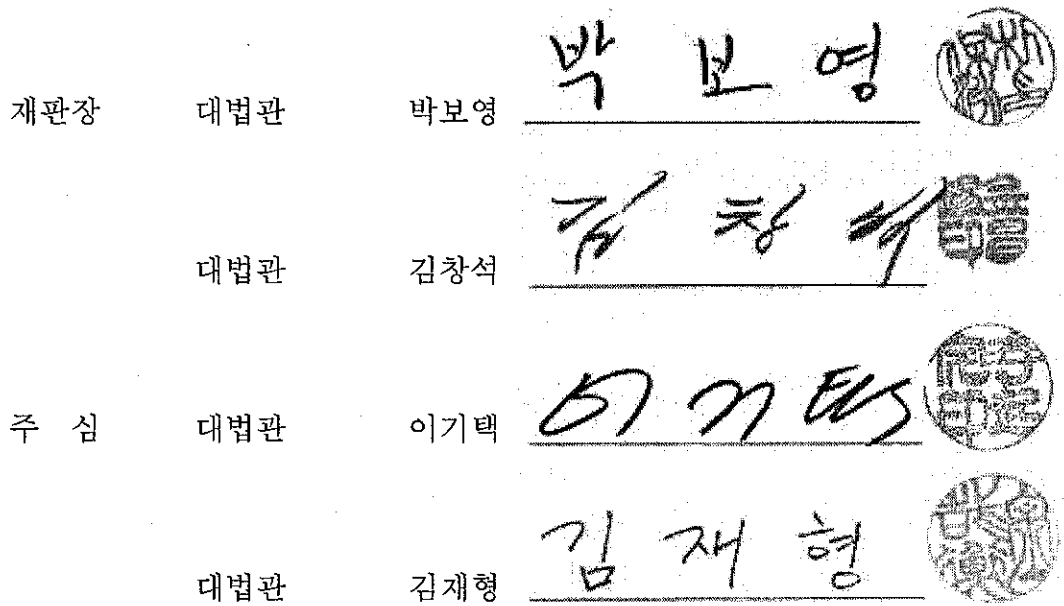 재판장 대법관 박보영 박 보 영
대법관 김창석 김 창 석
주 심 대법관 이기택 이 기 택
대법관 김재형 김 재 형